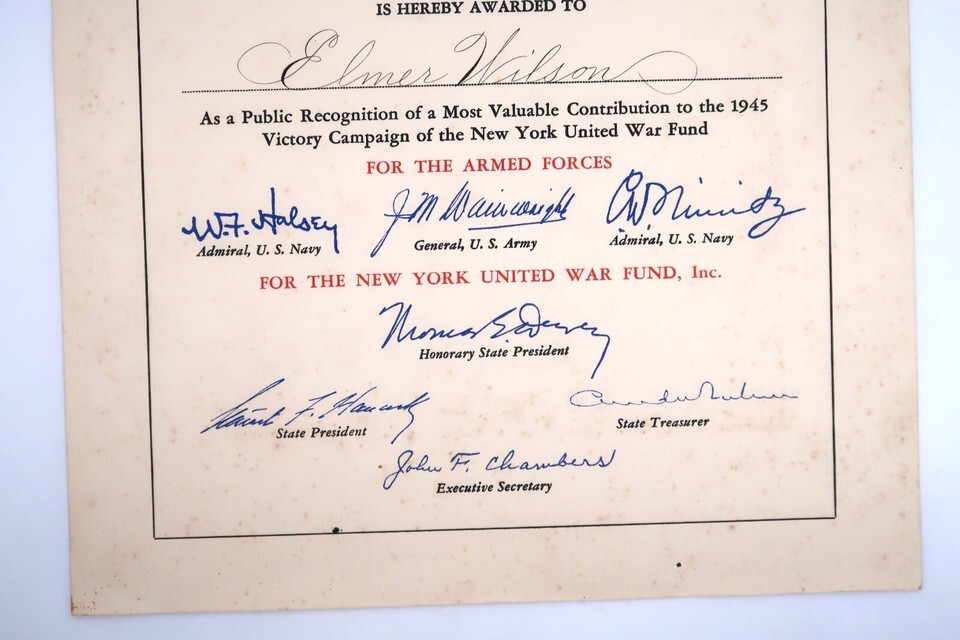 IS HEREBY AWARDED TO
Elmer Wilson
As a Public Recognition of a Most Valuable Contribution to the 1945
Victory Campaign of the New York United War Fund
FOR THE ARMED FORCES
W.F. Halsey J M Wainwright CW Nimitz
Admiral, U. S. Navy General, U. S. Army Admiral, U. S. Navy
FOR THE NEW YORK UNITED WAR FUND, Inc.
Thomas E. Dewey
Honorary State President
F. Hancock
State President State Treasurer
John F. Chambers
Executive Secretary